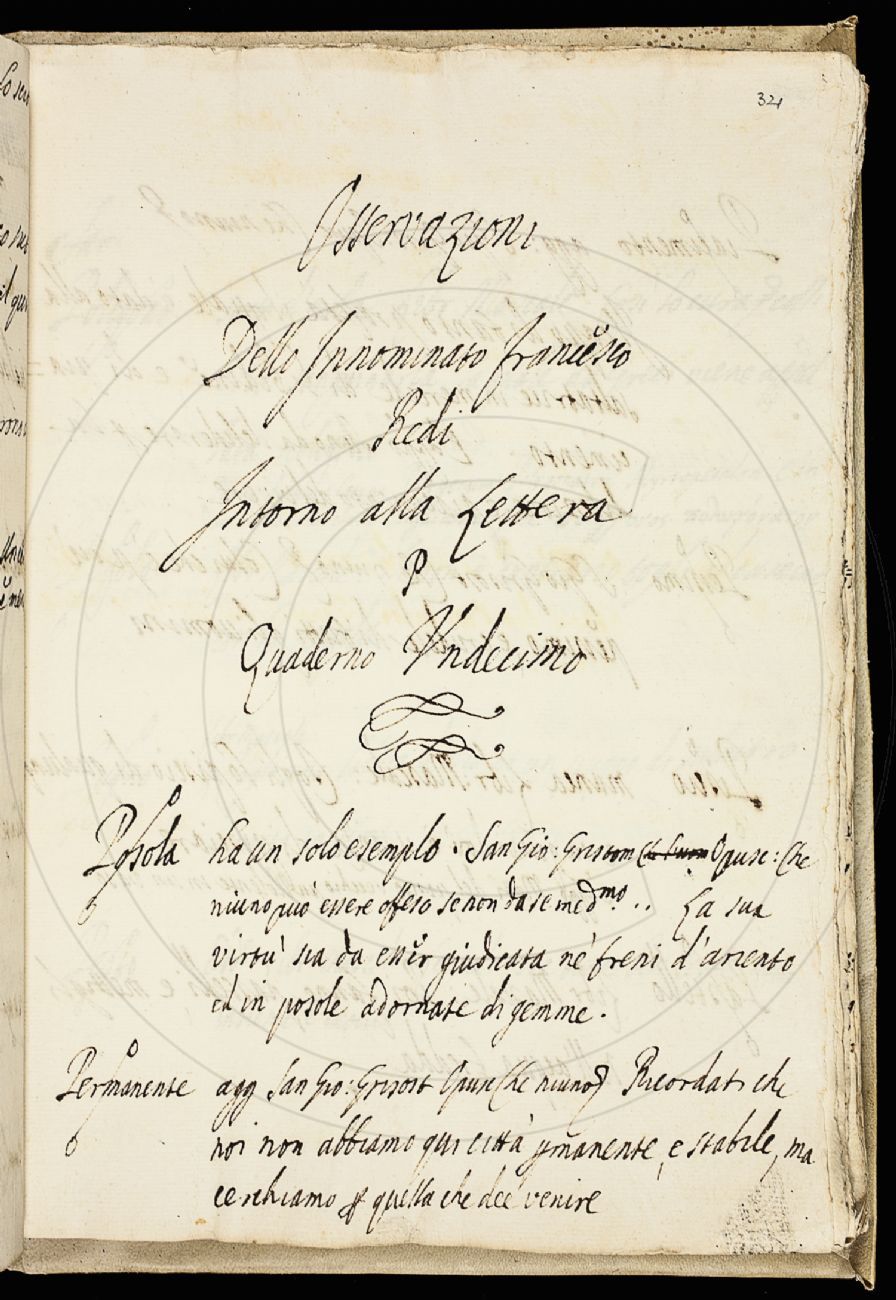 321
Osservazioni
Dello Innominato Francesco
Redi
Intorno alla Lettera
P
Quaderno Undecimo
Posola ha un solo esempio. San Gio: Grisostom Opusc: Che
niuno può essere offeso se non da se medmo.. La sua
virtù sia da esser giudicata né freni d'ariento
ed in posole adornate di gemme.
Permanente agg San Gio: Grisost Opusc Che niuno Ricordati che
noi non abbiamo qui città pmanente, e stabile, ma
cerchiamo p quella che dee venire